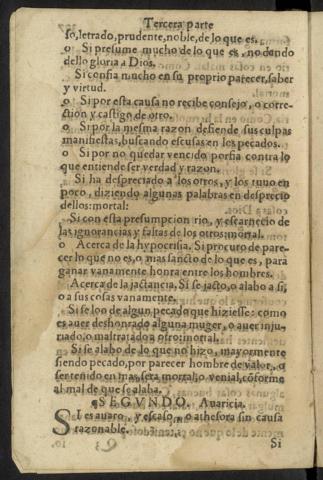 Tercera parte
so, letrado, prudente, noble, de lo que es.
o Si presume mucho de lo que es, no dando
dello gloria a Dios.
Si confia mucho en su proprio parecer, saber
y virtud.
o Si por esta causa no recibe consejo, o corre-
ction y castigo de otro.
o Si por la mesma razon defiende sus culpas
manifiestas, buscando escusas en los pecados.
o Si por no quedar vencido porfia contra lo
que entiende ser verdad y razon.
Si ha despreciado a los otros, y los tuuo en
poco, diziendo algunas palabras en desprecio
dellos: mortal:
Si con esta presumpcion rio, y escarnecio de
las ignorancias y faltas de los otros: mortal.
o Acerca de la hypocrisia. Si procuro de pare-
cer lo que no es, o mas sancto de lo que es, para
ganar vanamente honra entre los hombres.
Acerca de la jactancia. Si se jacto, o alabo a si,
o a sus cosas vanamente.
Si se loo de algun pecado que hiziesse: como
es auer deshonrado alguna muger, o auer inju-
riado, o maltratado a otro: mortal.
Si se alabo de lo que no hizo, mayormente
siendo pecado, por parecer hombre de valor, o
ser tenido en mas, sera mortal, o venial, cõforme
al mal de que se alaba.
¶ SEGVNDO. Auaricia.
Si es auaro, y escaso, o athesora sin causa
razonable.
Si